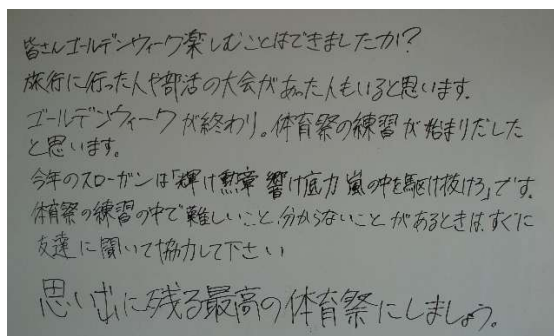 皆さんゴールデンウィーク楽しむことはできましたか?
旅行に行った人や部活の大会があった人もいると思います。
ゴールデンウィークが終わり。体育祭の練習が始まりだした
と思います。
今年のスローガンは「輝け勲章 響け底力 嵐の中を駆け抜けろ」です。
体育祭の練習の中で難しいこと、分からないことがあるときは、すぐに
友達に聞いて協力して下さい
思い出に残る最高の体育祭にしましょう。